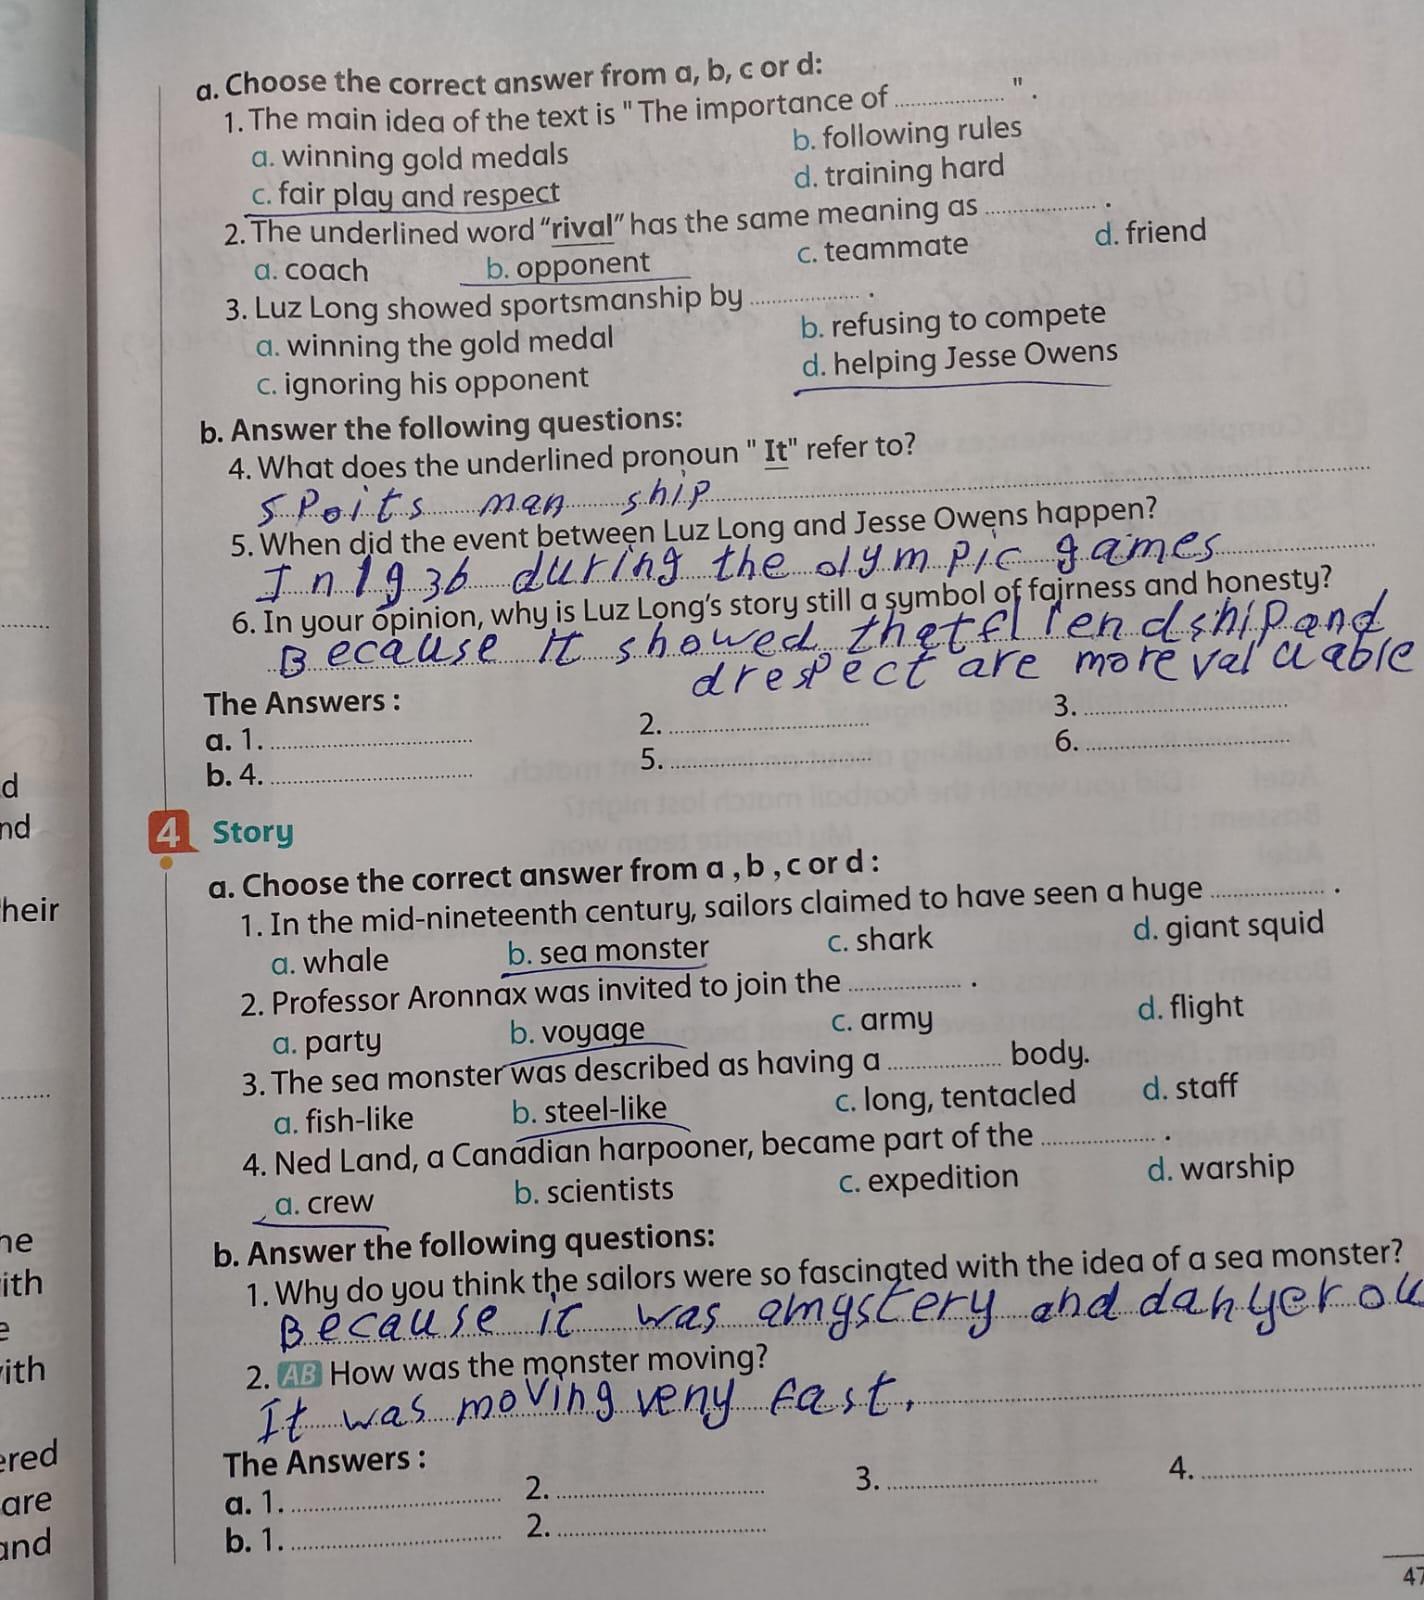 a. Choose the correct answer from a, b, c or d:
1. The main idea of the text is " The importance of .................... " .
a. winning gold medals b. following rules
c. fair play and respect d. training hard
2. The underlined word “rival” has the same meaning as .................... .
a. coach b. opponent c. teammate d. friend
3. Luz Long showed sportsmanship by .................... .
a. winning the gold medal b. refusing to compete
c. ignoring his opponent d. helping Jesse Owens
b. Answer the following questions:
4. What does the underlined pronoun " It" refer to?
spoits man ship
5. When did the event between Luz Long and Jesse Owens happen?
In 1936 during the olympic games
6. In your opinion, why is Luz Long’s story still a symbol of fairness and honesty?
Because it showed that friendship and
drespect are more valuable
The Answers :
a. 1. .................... 2. .................... 3. ....................
b. 4. .................... 5. .................... 6. ....................
4 Story
a. Choose the correct answer from a , b , c or d :
1. In the mid-nineteenth century, sailors claimed to have seen a huge .................... .
a. whale b. sea monster c. shark d. giant squid
2. Professor Aronnax was invited to join the .................... .
a. party b. voyage c. army d. flight
3. The sea monster was described as having a .................... body.
a. fish-like b. steel-like c. long, tentacled d. staff
4. Ned Land, a Canadian harpooner, became part of the .................... .
a. crew b. scientists c. expedition d. warship
b. Answer the following questions:
1. Why do you think the sailors were so fascinated with the idea of a sea monster?
Because it was amystery and dangerou
2. AB How was the monster moving?
It was moving veny fast.
The Answers :
a. 1. .................... 2. .................... 3. .................... 4. ....................
b. 1. .................... 2. ....................
47
d
nd
heir
he
ith
e
ith
ered
are
and